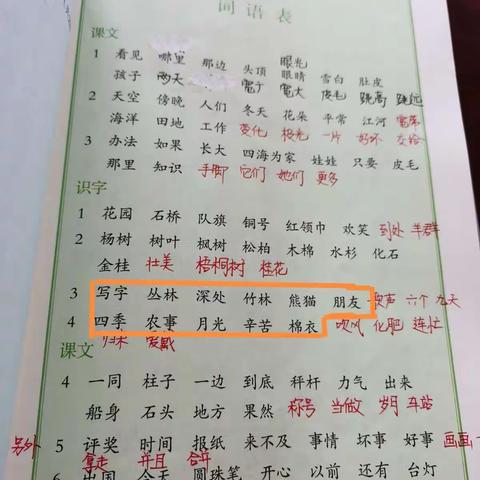 词语表
课文
1 看见 哪里 那边 头顶 眼光 眼睛 雪白 肚皮
孩子 两天 皮毛 跳高 跳远
2 天空 傍晚 人们 冬天 花朵 平常 江河
海洋 田地 工作 变化 极光 一片 好坏 交给
3 办法 如果 长大 四海为家 娃娃 只要 皮毛
那里 知识 手脚 它们 她们 更多
识字
1 花园 石桥 队旗 铜号 红领巾 欢笑 到处 羊群
2 杨树 树叶 枫树 松柏 木棉 水杉 化石
金桂 壮美 梧桐树 桂花
3 写字 丛林 深处 竹林 熊猫 朋友 歌声 六个 九天
4 四季 农事 月光 辛苦 棉衣 吹风 化肥 连忙
归来 爱戴
课文
4 一同 柱子 一边 到底 秤杆 力气 出来
船身 石头 地方 果然 称号 当做 岁月 车站
另外 5 评奖 时间 报纸 来不及 事情 坏事 好事 画画
拿走 并且 合开
6 出国 今天 圆珠笔 开心 以前 还有 台灯